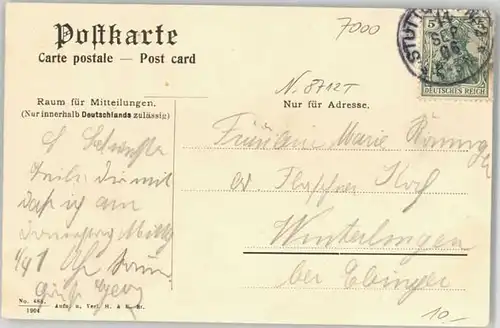 Postkarte
Carte postale — Post card
7000
STUTTG
14
SEP
06
5 5
DEUTSCHES REICH
N. 8712T
Raum für Mitteilungen.
(Nur innerhalb Deutschlands zulässig)
Nur für Adresse.
teile dir mit
daß ich am
Donnerstag Mittag
Uhr
Fräulein Marie
Flaschner Koch
Winterlingen
bei Ebingen
No. 484.
1904
Aufn. u. Verl. H. &
10.-